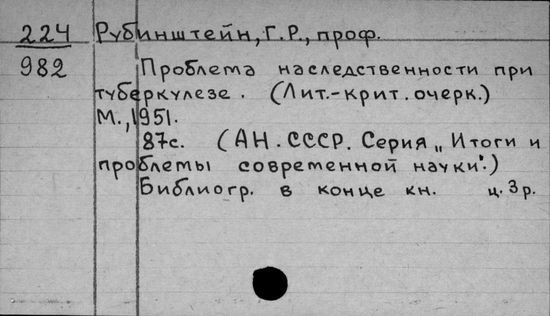 224 Рубинштейн, Г.Р., проф.
982 Проблема наследственности при
туберкулезе. (Лит.-крит. очерк.)
М., 1951.
87с. (АН. СССР. Серия „Итоги и
проблемы современной науки".)
Библиогр. в конце кн. ц. 3р.